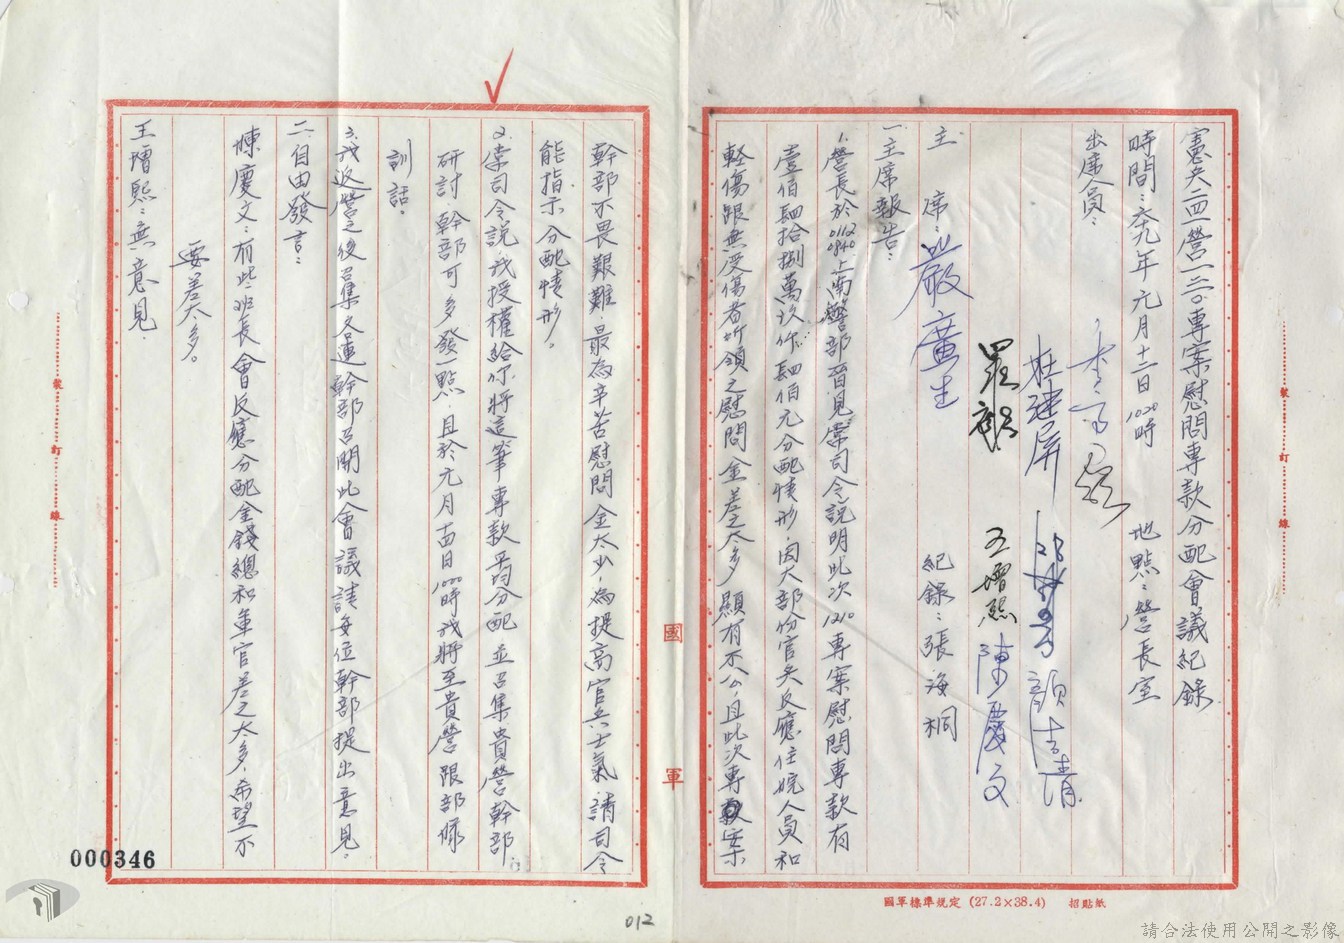 憲兵二四一營一二一〇專案慰問專款分配會議紀錄
時間：六九年元月十二日1020時 地點：營長室
出席人員：
杜建屏
羅 王增熙 陳慶文
主 席：嚴廣生 紀錄：張海桐
一主席報告：
1.營長於0112 0840上南警部晉見常司令說明此次1210專案慰問專款有
壹佰肆拾捌萬玖仟肆佰元分配情形，因大部份官兵反應住院人員和
軽傷跟無受傷者所領之慰問金差之太多顯有不公，且此次專案
幹部不畏艱難最為辛苦慰問金太少，為提高官兵士氣請司令
能指示分配情形。
2.常司令說我授權給你將這筆專款平均分配並召集貴營幹部
研討，幹部可多發一點，且於元月十四日1000時我將至貴營跟部隊
訓話。
3.我返營之後召集各連幹部召開此會議請每位幹部提出意見。
二.自由發言：
陳慶文：有些班長會反應分配金錢總和軍官差之太多，希望不
要差太多。
王增熙：無意見.
國軍
國軍標準規定 (27.2×38.4) 招點紙
裝 訂 線
裝 訂 線
000346
012
請合法使用公開之影像